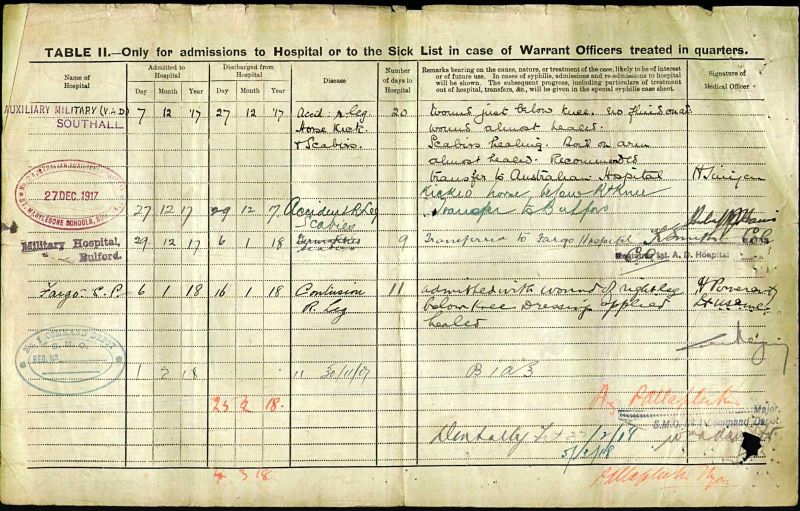 TABLE II.—Only for admissions to Hospital or to the Sick List in case of Warrant Officers treated in quarters.
Name of Hospital
Admitted to Hospital
Day Month Year
Discharged from Hospital
Day Month Year
Disease
Number of days in Hospital
Remarks bearing on the cause, nature, or treatment of the case, likely to be of interest
or of future use. In cases of syphilis, admissions and re-admissions to hospital
will be shown. The subsequent progress, including particulars of treatment
out of hospital, transfers, &c., will be given in the special syphilis case sheet.
Signature of Medical Officer
AUXILIARY MILITARY (V.A.D.) 7 12 '17 27 12 '17 Accid: r. leg 20 Wound just below knee. No fluid
SOUTHALL Horse Kick wound almost healed.
& Scabies. Scabies healing. Boil on arm
almost healed. Recommended
transfer to Australian Hospital
Kicked horse below Rt Knee
27 DEC. 1917
ST. MARYLEBONE SCHOOLS,
27 12 17 29 12 17 Accident R. Leg Transfer to Bulford
Scabies
Military Hospital, 29 12 17 6 1 18 9 Transferred to Fargo Hospital
Bulford. Scabies
A. D. Hospital
Fargo 6 1 18 16 1 18 Contusion 11 admitted with wound of right leg
R. leg below knee Dressing applied
healed
No. 1 COMMAND DEPOT
S.M.O.
REG. No.
1 2 18 30/11/17 B 1 A 3
25 2 18.
Major,
S.M.O. No. 1 Command Depot.
Dentally Fit
5/2/18
4 3 18